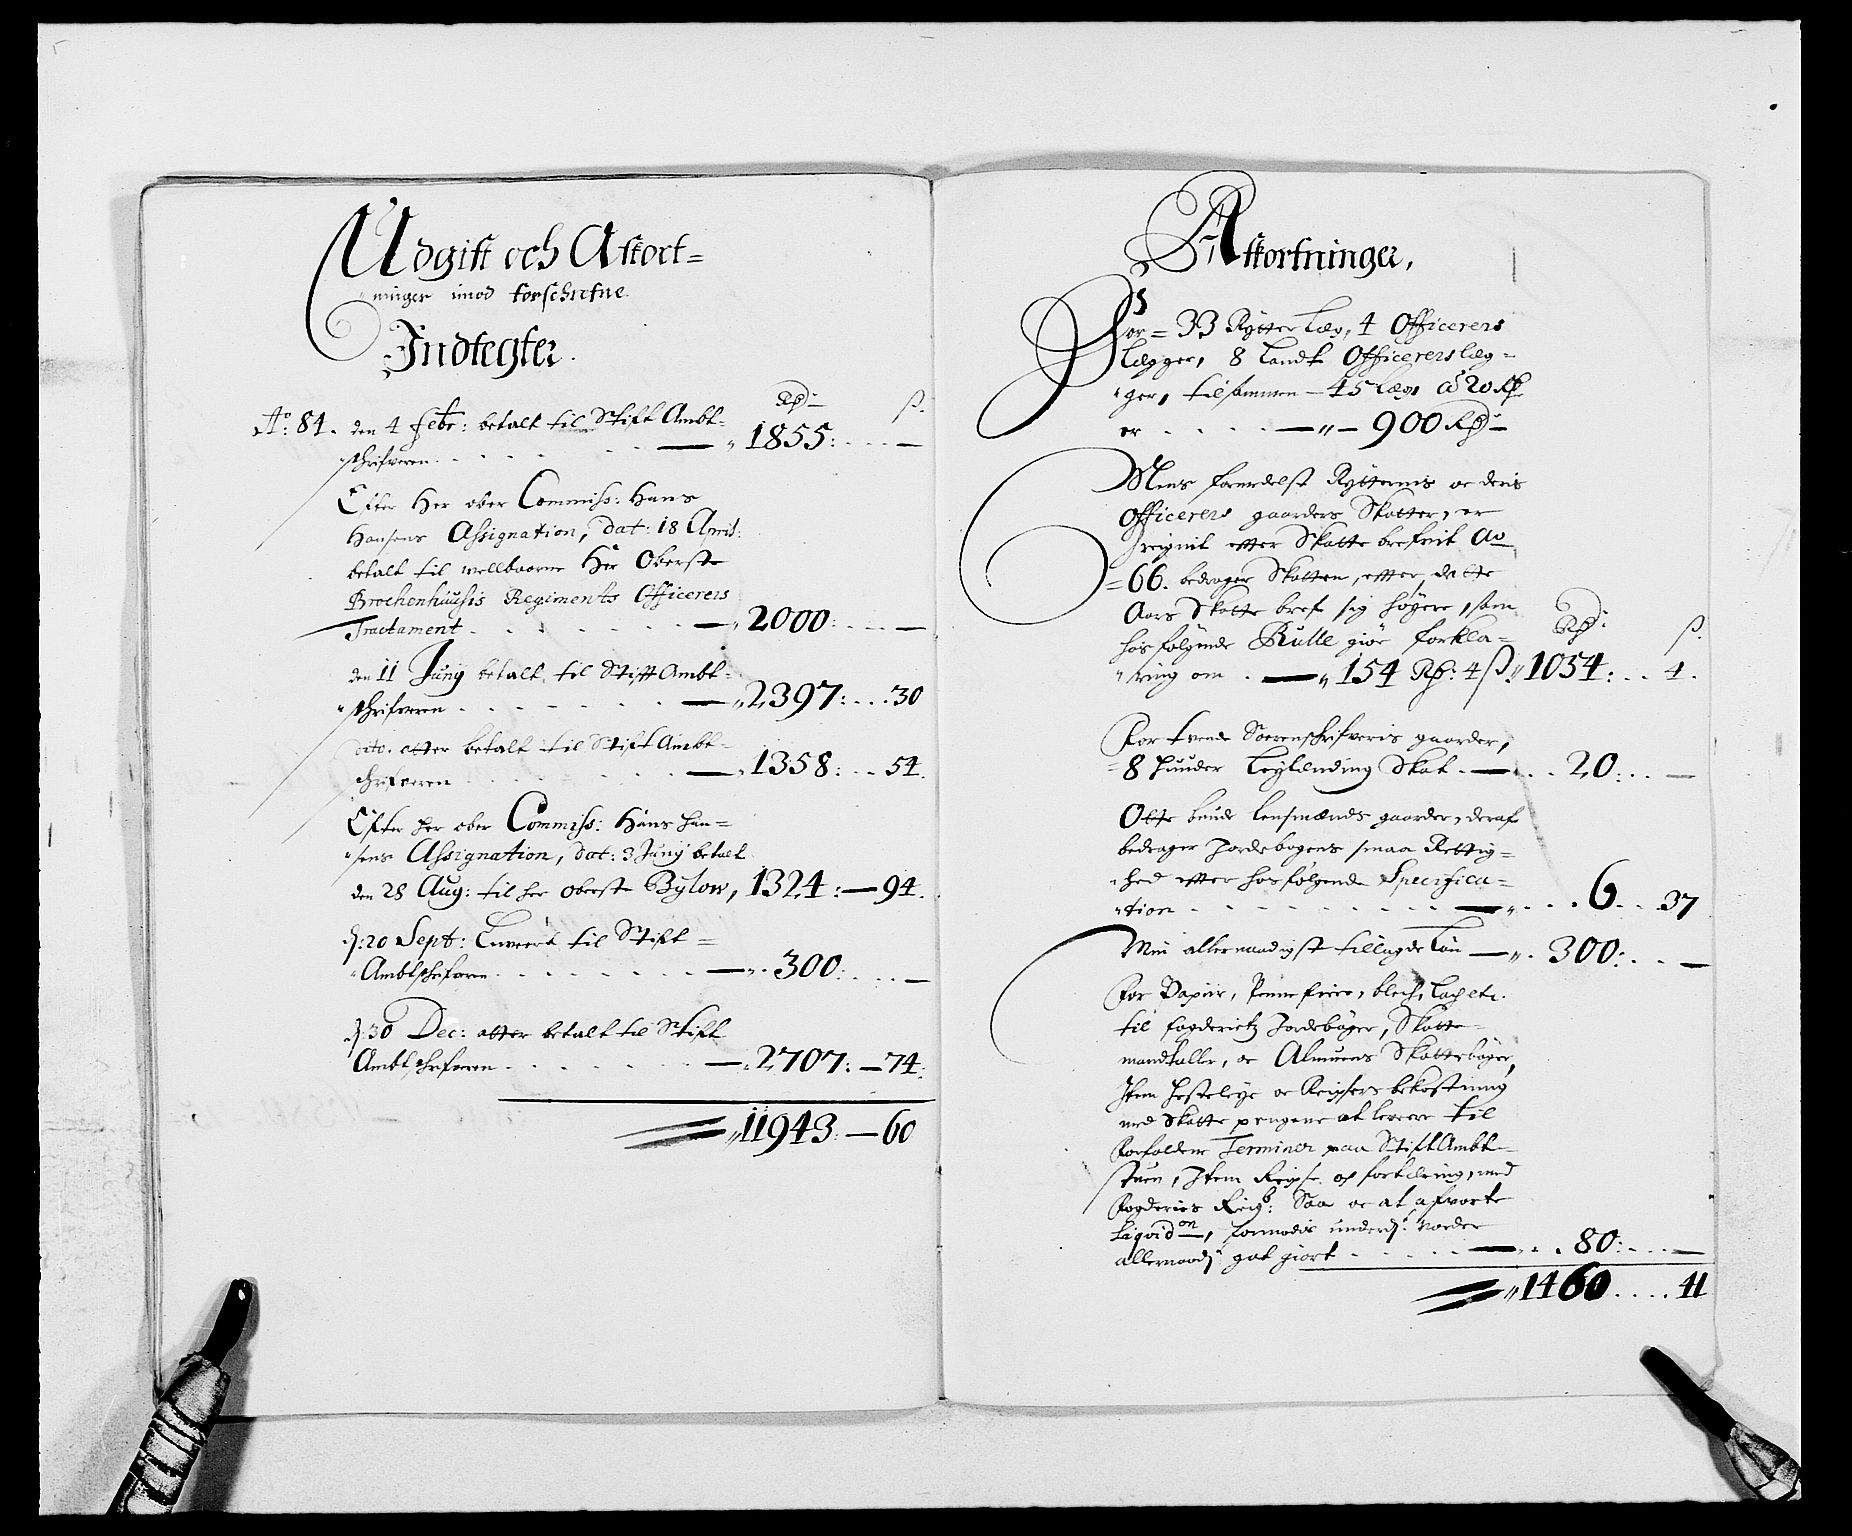 Udgift och Afkort=
ninger imod forschrefne
Indtegter.
Rd:
ß.
Ao: 84. den 4 febr: betalt til Stift Ambt=
schrifveren . . . — 1855: . . . —
Efter Her ober Commiss: Hans
Hansens Assignation, dat: 18 April:
betalt til wellbaarne Her Oberste
Brochenhuusis Regiments Officerers
Tractament . . . — 2000: . . . —
den 11 Juny betalt til Stift Ambt=
schrifveren . . . — 2397: . . . 30
dito. atter betalt til Stift Ambt=
schrifveren . . . — 1358: . . . 54.
Efter her ober Commiss: Hans Han=
sens Assignation, dat: 3 Juny betalt
den 28 Aug: til her Oberste Bylow, 1324: — 94.
d: 20 Sept: Liwert til Stift=
Ambtschrifveren . . . — 300: . . . —
d: 30 Dec: atter betalt til Stift
Ambtschrifveren . . . — 2707: — 74.
11943: — 60
Afkortninger,
For = 33 Rytter Læg, 4 Officerers
Lægger, 8 Landt Officerers læg=
ger, tilsammen — 45 Læg, a 20 Rd
er . . . — 900 Rd:
Mens formedelst Rytternis oc deris
Officerers gaarders Skatter, er
Ao
=66. bedrager Skatten, efter dette
Aars Skatte bref sig højere, som
hosfølgende Rulle giør forkla=
Rd:
ß.
ring om . — 154 Rd: 4 ß. 1054: . . 4.
For tvende Sorenschrifveris gaarder,
8 Hunder Leylending Skat . — . . 20: . . —
Otte bunde Lensmænds gaarder, deraf
bedrager Jordebogens smaa Rettig=
hed efter hosfølgende Specifica=
tion . . . — . . . 6 . . 37
Min allernaadigst tillagde Løn — . 300: . . —
For Papiir, Penne fiere, blech, Lach etc.
til fogderietz Jordebøger, Skatte=
mandtaller, oc Almuens Skattebøger,
Item Hesteleye oc Reysers bekostning
med Skatte pengene at levere til
Forfaldne Terminer paa Stift Ambt=
stuen, Item Reyse och fortæring, med
Fogderies Reig: Saa oc at afvarte
Liqvidon,
allernaad: got giort . . . — . . . 80: . . . —
1460 . . . . 41